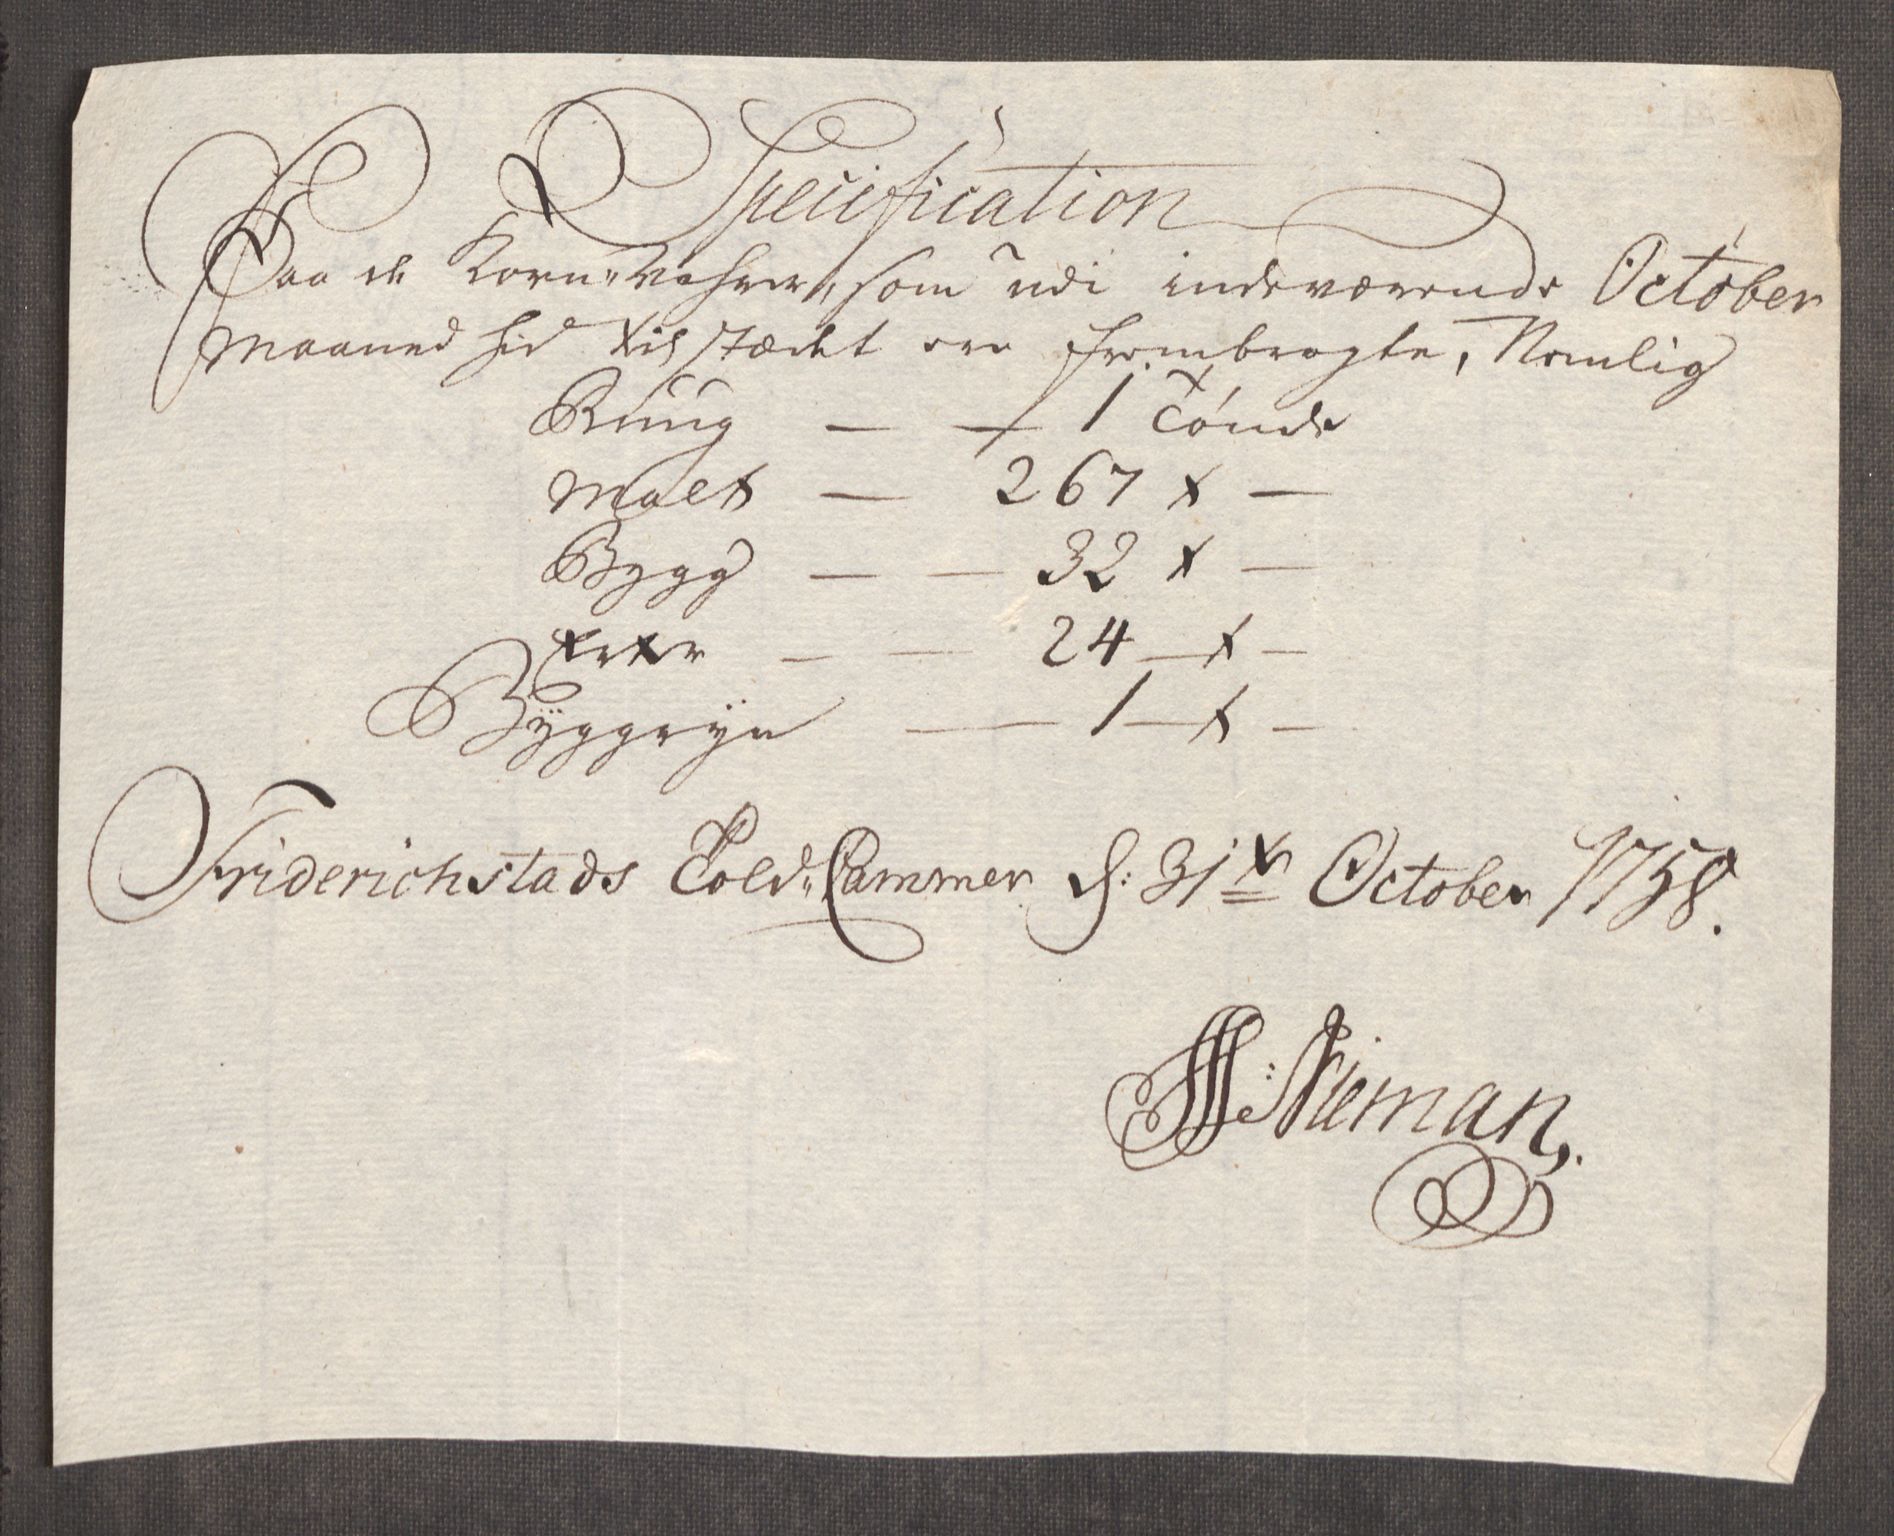 Specification
Paa de Korn-Vahrer, som udi indeværende October
Maaned hid til stædet ere frembragte, Nemlig
Ruug — — 1 Tønde
Malt — 267 t —
Bygg — — 32 t —
Erter — — 24 — t —
Byggryn — 1 — t —
Friderichstads Told-Cammer d: 31te October 1758.
Nieman,